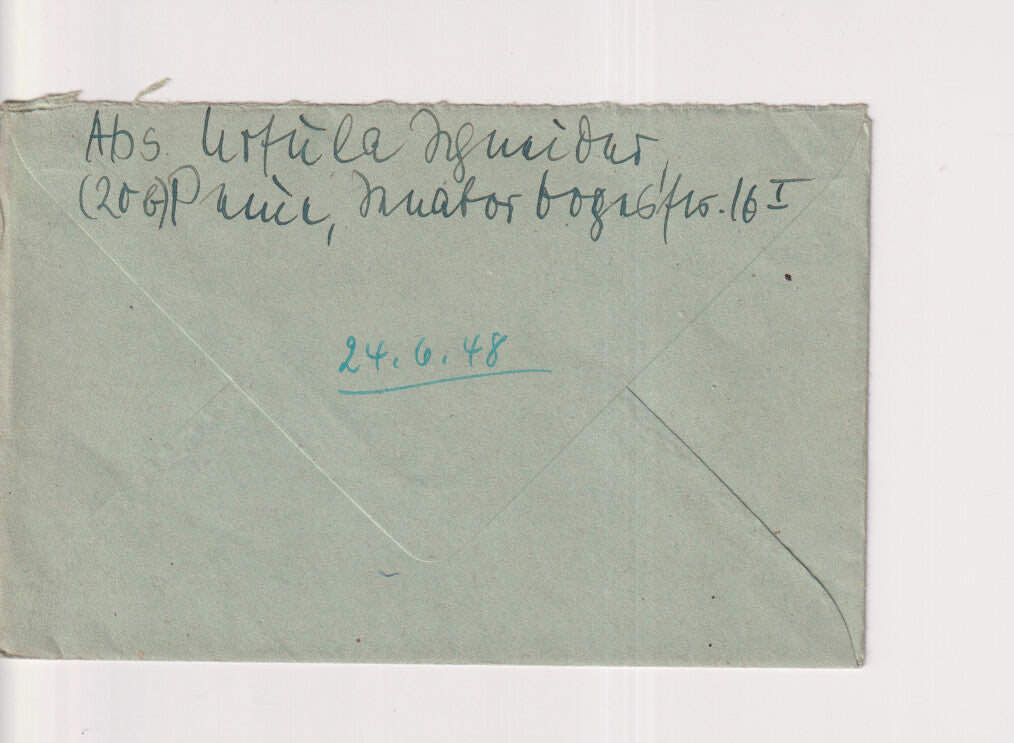 Abs. Ursula Schneider,
(20b) Peine, Senator Vogesstr. 16 I
24.6.48